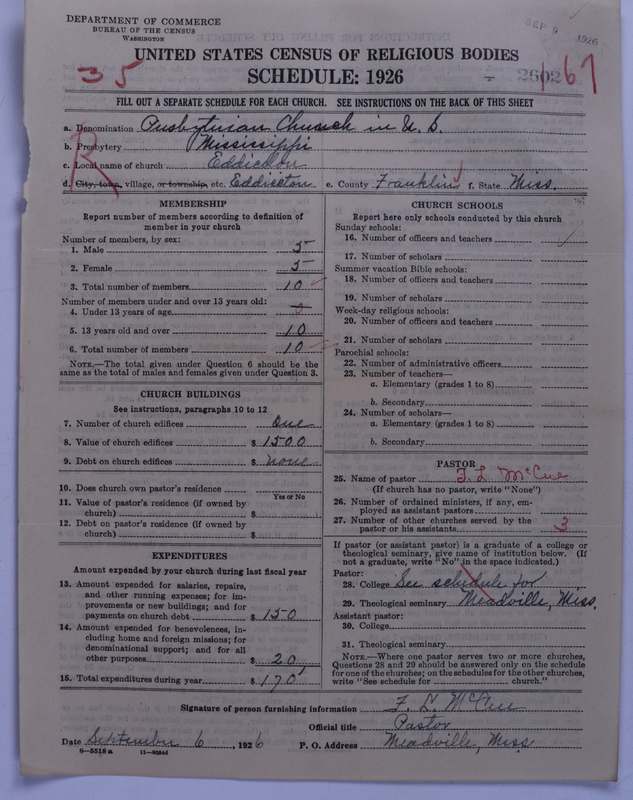 DEPARTMENT OF COMMERCE
BUREAU OF THE CENSUS
WASHINGTON
SEP 9 1926
UNITED STATES CENSUS OF RELIGIOUS BODIES
SCHEDULE: 1926
35
2602
167
FILL OUT A SEPARATE SCHEDULE FOR EACH CHURCH. SEE INSTRUCTIONS ON THE BACK OF THIS SHEET
a. Denomination Presbyterian Church in U.S.
b. Presbytery Mississippi
c. Local name of church Eddiceton
d. City, town, village, or township, etc. Eddiceton e. County Franklin f. State Miss.
R
MEMBERSHIP
Report number of members according to definition of
member in your church
Number of members, by sex:
1. Male 5
2. Female 5
3. Total number of members 10
Number of members under and over 13 years old:
4. Under 13 years of age
5. 13 years old and over 10
6. Total number of members 10
NOTE.—The total given under Question 6 should be
same as the total of males and females given under Question 3.
CHURCH BUILDINGS
See instructions, paragraphs 10 to 12
7. Number of church edifices One
8. Value of church edifices $ 1500
9. Debt on church edifices $ none
10. Does church own pastor's residence
Yes or No
11. Value of pastor's residence (if owned by
church) $
12. Debt on pastor's residence (if owned by
church) $
EXPENDITURES
Amount expended by your church during last fiscal year
13. Amount expended for salaries, repairs,
and other running expenses; for im-
provements or new buildings; and for
payments on church debt $ 150
14. Amount expended for benevolences, in-
cluding home and foreign missions; for
denominational support; and for all
other purposes $ 20
15. Total expenditures during year $ 170
CHURCH SCHOOLS
Report here only schools conducted by this church
Sunday schools:
16. Number of officers and teachers
17. Number of scholars
Summer vacation Bible schools:
18. Number of officers and teachers
19. Number of scholars
Week-day religious schools:
20. Number of officers and teachers
21. Number of scholars
Parochial schools:
22. Number of administrative officers
23. Number of teachers—
a. Elementary (grades 1 to 8)
b. Secondary
24. Number of scholars—
a. Elementary (grades 1 to 8)
b. Secondary
PASTOR
25. Name of pastor F. L. McCue
(If church has no pastor, write "None")
26. Number of ordained ministers, if any, em-
ployed as assistant pastors
27. Number of other churches served by the
pastor or his assistants 3
If pastor (or assistant pastor) is a graduate of a college or
theological seminary, give name of institution below. (If
not a graduate, write "No" in the space indicated.)
Pastor:
28. College See schedule for
29. Theological seminary Meadville, Miss.
Assistant pastor:
30. College
31. Theological seminary
NOTE.—Where one pastor serves two or more churches,
Questions 28 and 29 should be answered only on the schedule
for one of the churches; on the schedules for the other churches,
write "See schedule for church."
Signature of person furnishing information F. L. McCue
Official title Pastor
Date September 6, 1926 P. O. Address Meadville, Miss
8-5518a